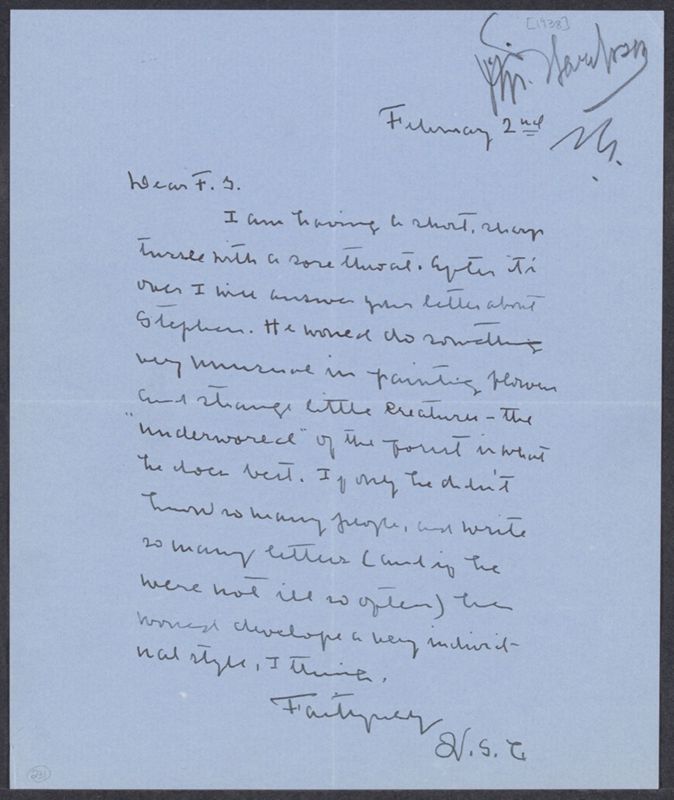 [1938]
February 2nd
Dear F. G.
I am having a short, sharp
tussle with a sore throat. After it's
over I will answer your letter about
Stephen. He would do something
very unusual in painting flowers
and strange little creatures – the
"underworld" of the forest is what
he does best. If only he didn't
know so many people, and write
so many letters (and if he
were not ill so often) he
would develope a very individ-
ual style, I think.
Faithfully
W. S. C.